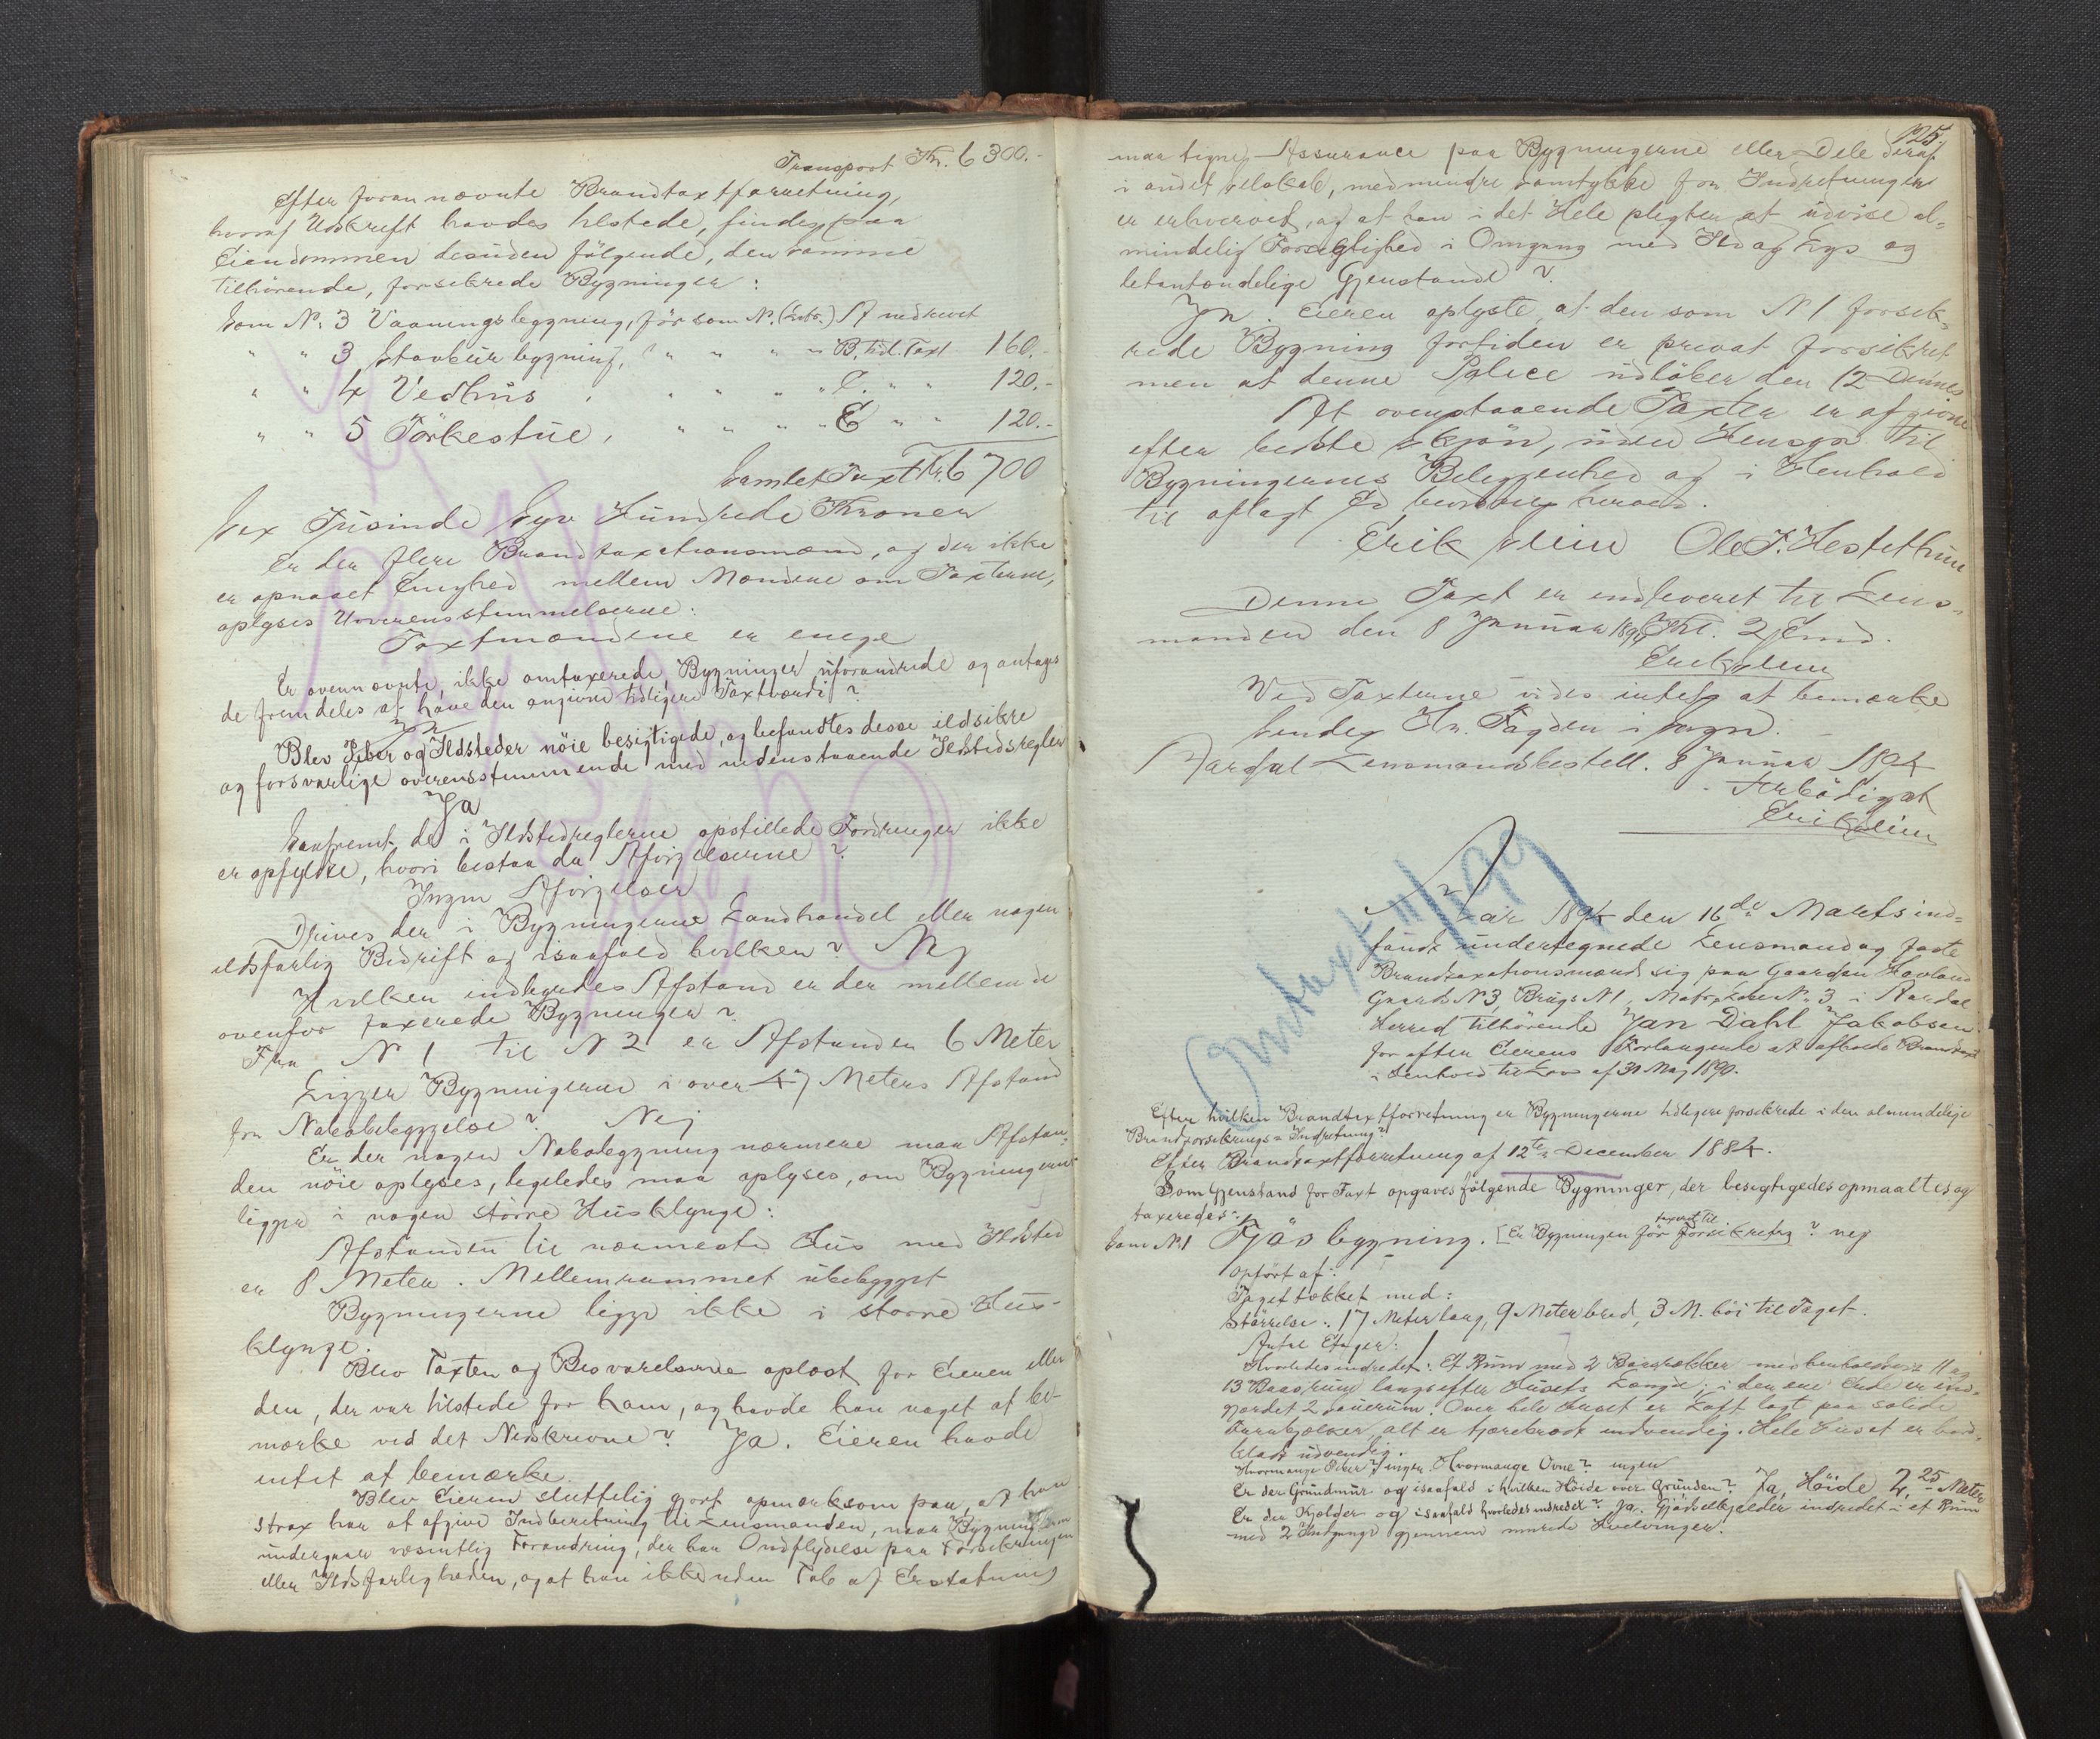 Transport Kr. 6 300.-
Efter forannævnte Brandtaxtforretning,
hvoraf Udskrift havdes tilstede, findes paa
Eiendommen desuden følgende, den samme
tilhørende, forsikrede Bygninger:
Som N. 3 Vaaningsbygning, før som N. (Litr.) A nedrevet
" " 3 Stavburbygning, " " " " B. tid. Taxt 160.-
" " 4 Vedhus, " " " " C. " " 120.-
" " 5 Tørkestue, " " " " E " " 120.-
Samlet Taxt Kr. 6 700
Sex Tusinde Syv Hundrede Kroner
Er der flere Brandtaxationsmænd, og der ikke
er opnaaet Enighed mellem Mændene om Taxterne,
oplyses Uoverensstemmelserne:
Taxtmændene er enige
Er ovennævnte, ikke omtaxerede Bygninger uforandrede og antages
de fremdeles at have den angivne tidligere Taxtværdi?
Ja
Blev Piber og Ildsteder nöie besigtigede, og befandtes desse ildsikre
og forsvarlige overensstemmende med nedenstaaende Ildstedsregler
Ja
Saafremt de i Ildstedreglerne opstillede Fordringer ikke
er opfyldte, hvori bestaa da Afvigelserne?
Ingen Afvigelser
Drives der i Bygningerne Landhandel eller nogen
ildsfarlig Bedrift og isaafald hvilken? Nej
Hvilken indbyrdes Afstand er der mellem de
ovenfor taxerede Bygninger?
Fra N 1 til N 2 er Afstanden 6 Meter
Ligger Bygningerne i over 47 Meters Afstand
fra Nabobebyggelse? Nej
Er der nogen Nabobygning nærmere maa Afstan-
den nöie oplyses, ligeledes maa oplyses, om Bygningerne
ligger i nogen större Husklynge:
Afstanden til nærmeste Hus med Ildsted
er 8 Meter. Mellemrummet ubebygget
Bygningerne ligge ikke i større Hus-
klynge.
Blev Taxten og Besvarelserne oplæst for Eieren eller
den, der var tilstede for ham, og havde han noget at be-
mærke ved det Nedskrevne? Ja. Eieren havde
intet at bemærke.
Blev Eieren sluttelig gjort opmærksom paa, at han
strax har at afgive Indberetning til Lensmanden, naar Bygningerne
undergaar væsentlig Forandring, der har Indflydelse paa Forsikringen
eller Ildsfarligheden, og at han ikke uden Tab af Erstatning
125.
maa tegne Assurance paa Bygningerne eller Dele deraf
i andet selskab, medmindre samtykke fra Indretningen
er erhvervet, og at han i det Hele pligter at udvise al-
mindelig Forsigtighed i Omgang med Ild og Lys og
letantændelige Gjenstande?
Ja. Eieren oplyste, at den som N 1 forsik-
rede Bygning fortiden er privat forsikret
men at denne Police udløber den 12 Dennes
At ovenstaaende Taxter er afgivne
efter bedste skjøn, uden Hensyn til
Bygningernes Beliggenhed og i Henhold
til aflagt Ed bevidnes herved.
Erik Olein Ole J. Hestethun
Denne Taxt er indleveret til Lens-
manden den 8 Januar 1894 Kl. 2 Emd.
Ved Taxterne vides intet at bemærke
Sendes Hr. Fogden i Sogn.
Aardal Lensmandsbestell. 8 Januar 1894
Ærbödigst
Omtaxt 11/1 99
Aar 1894 den 16de Marts ind-
fandt undertegnede Lensmand og faste
Brandtaxationsmænd sig paa Gaarden Hovland
Gaards N 3, Brugs N 1, Matrikul N. 3 i Aardal
Herred tilhørende Jan Dahl Jakobsen
for efter Eierens Forlangende at afholde Brandtaxt
i Henhold til Lov af 31 Maj 1890.
Efter hvilken Brandtaxtforretning er Bygningerne tidligere forsikrede i den almindelige
Brandforsikrings-Indretning?
Efter Brandtaxtforretning af 12te December 1884.
Som Gjenstand for Taxt opgaves følgende Bygninger, der besigtigedes opmaaltes og
taxeredes:
Som N 1 Fjøsbygning. [Er Bygningen før taxeret til Forsikring? nej
Opfört af:
Taget tækket med:
Størrelse: 17 Meter lang, 9 Meter bred, 3 M. höi til Taget.
Antal Etager: 1
Hvorledes indredet: Et Rum med 2 Baasrækker med henholdsvis 11 og
13 Baasrum langsefter Husets Længde; i den ene Ende er ind-
gjærdet 2 Sauerum. Over hele Huset er Loft lagt paa solide
Tværbjælker, alt er tjærebredt indvendig. Hele Huset er bord-
klædt udvendig.
Hvormange Piber? ingen. Hvormange Ovne? ingen
Er der Grundmur og isaafald i hvilken Höide over Grunden? Ja, Höide 2,25 Meter
Er der Kjelder og isaafald hvorledes indredet? Ja. Gjødselkjelder indredet i et Rum
med 2 Indgange gjennem murede Hvelvinger.